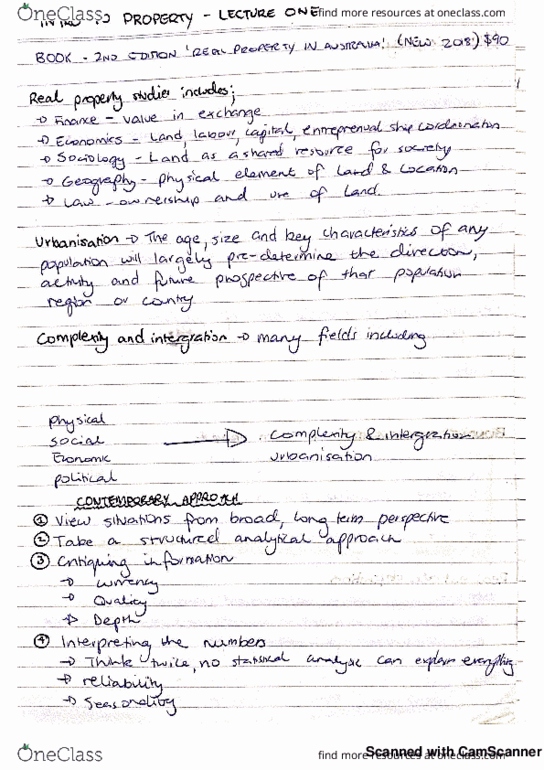 OneClass
find more resources at oneclass.com
INTRO TO PROPERTY - LECTURE ONE
BOOK - 2ND EDITION 'REAL PROPERTY IN AUSTRALIA' (NEW 2018) $90
Real property studies includes;
→ Finance - value in exchange
→ Economics - Land, labour, capital, entreprenual ship coordination
→ Sociology - Land as a shared resource for society
→ Geography - physical element of land & location
→ Law - ownership and use of land.
Urbanisation → The age, size and key characteristics of any
population will largely pre-determine the direction,
activity and future prospective of that population
region or country
Complexity and intergration → many fields including
physical
social
Economic
political
→ complexity & intergration
urbanisation
CONTEMPORARY APPROACH
① View situations from broad, long term perspective
② Take a structured analytical approach
③ Critiquing information
→ currency
→ Quality
→ Depth
④ Interpreting the numbers
→ Think twice, no statistical analysis can explain everything
→ reliability
→ Seasonality
OneClass
find more resources at oneclass.com
Scanned with CamScanner